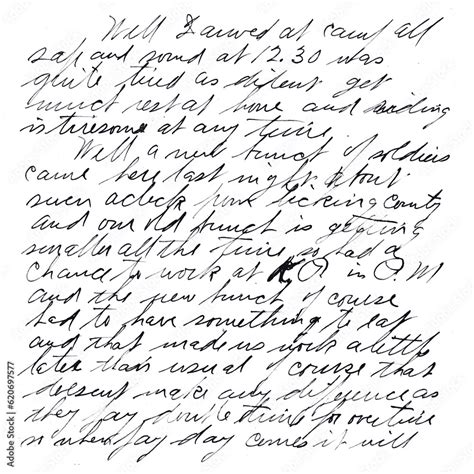 Well I arived at camp all
safe and sound at 12.30 was
quite tired as dident get
munct rest at home and riding
is tiresome at any time.
Well a new bunct of soldiers
came here last night about
seven aclock from Licking county
and our old bunct is getting
smaller all the time so had a
chance to work at K.P. in P.M
and the new bunct of course
had to have something to eat
and that made us work a little
later than usual of course that
doesent make any difference as
they pay double time for overtime
so when pay day comes it will
Adobe Stock | #620697577
Adobe Stock